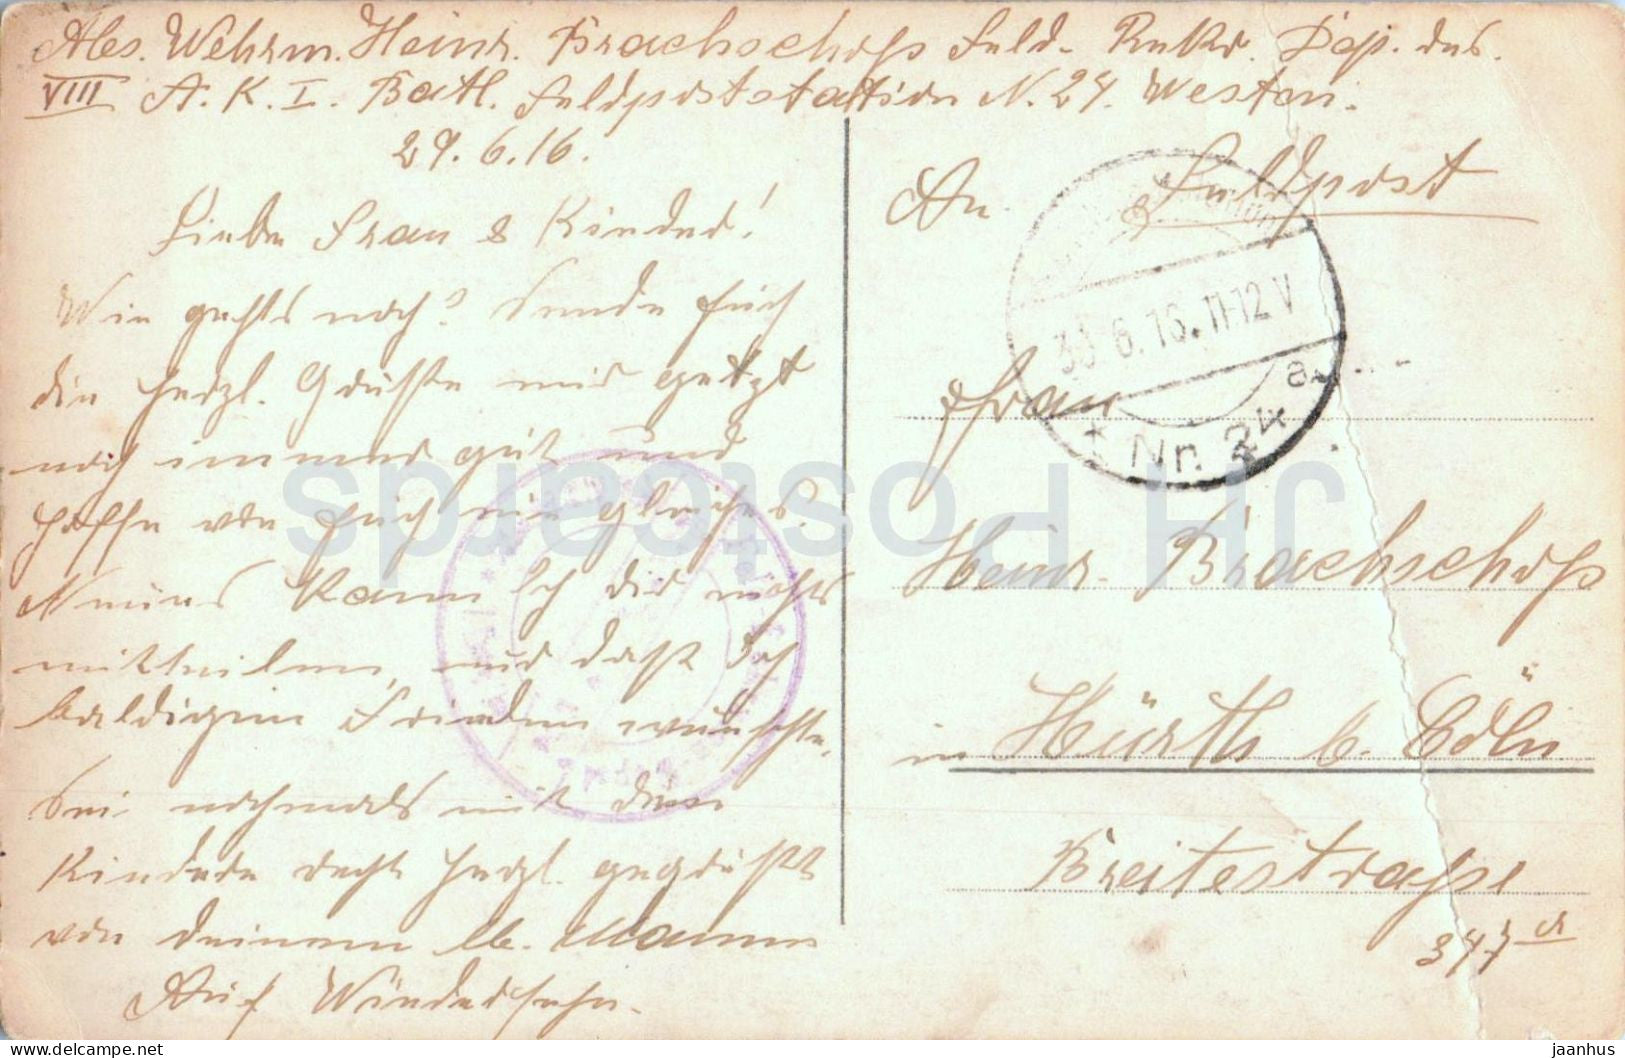 Abs. Wehrm. Heinr. Brachschoss Feld- Rekr. Dep. des.
VIII A. K. I. Batl. Feldpoststation N. 24. Westen.
29. 6. 16.
Liebe Frau & Kinder!
Wie gehts noch? Sende Euch
die herzl. Grüße mir geht
noch immer gut und
hoffe von Euch ein gleiches.
Neues kann Ich dir nichts
mitteilen, und daß Ich
baldigen Frieden wünschte.
Sei nochmals mit den
Kinder recht herzl. gegrüßt
von deinem lb. Manne
Auf Wiedersehn.
An Feldpost
30. 6. 16. 11-12 V
a
* Nr. 24
Frau
Heinr. Brachschoss
in Hürth b. Cöln
Breitestrasse
347
JH Postcards
delcampe.net
jaanhus